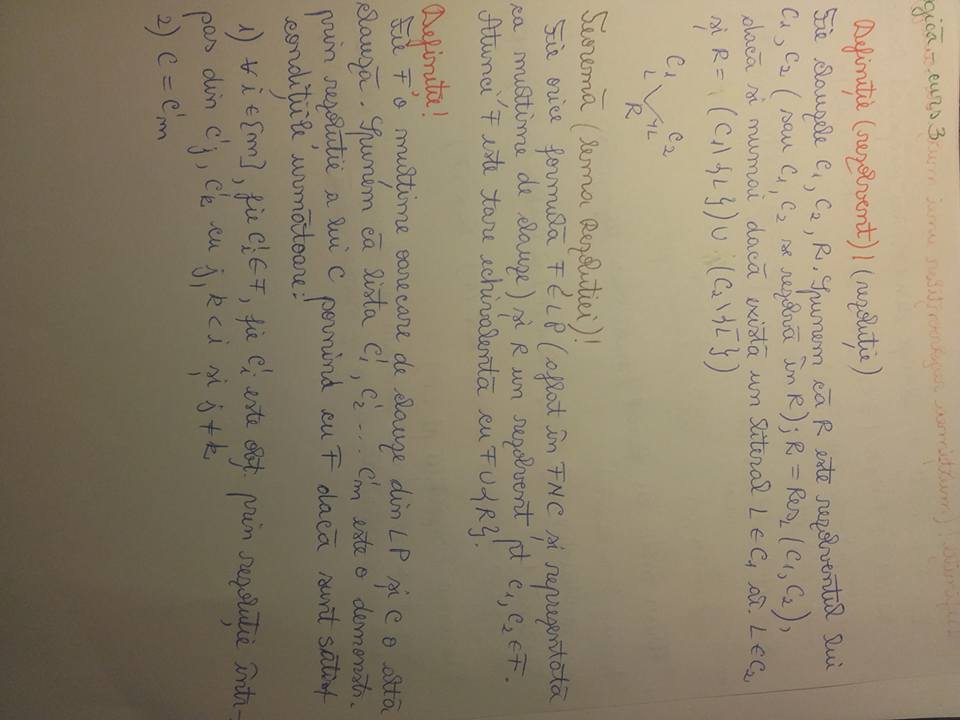 gică - curs 3
Definiție (rezolvent)! (rezoluție)
Fie clauzele C1, C2, R. Spunem că R este rezolventul lui
C1, C2 (sau C1, C2 se rezolvă în R); R = ResL (C1, C2),
dacă si numai dacă există un literal L ∈ C1 aî. L ∈ C2
și R = (C1\{L}) ∪ (C2\{L̄})
C1 C2
L ㄱL
R
Teoremă (lema Rezoluției)!
Fie orice formulă F ∈ LP (aflat în FNC și reprezentată
ca mulțime de clauze) și R un rezolvent pt C1, C2 ∈ F.
Atunci F este tare echivalentă cu F ∪ {R}.
Definiție!
Fie F o mulțime oarecare de clauze din LP și C o altă
clauză. Spunem că lista C'1, C'2 ... C'm este o demonstr.
prin rezoluție a lui C pornind cu F dacă sunt satisf
condițiile următoare:
1) ∀ i ∈ [m], fie C'i ∈ F, fie C'i este obț. prin rezoluție într-
pas din C'j, C'k cu j, k < i și j ≠ k
2) C = C'm